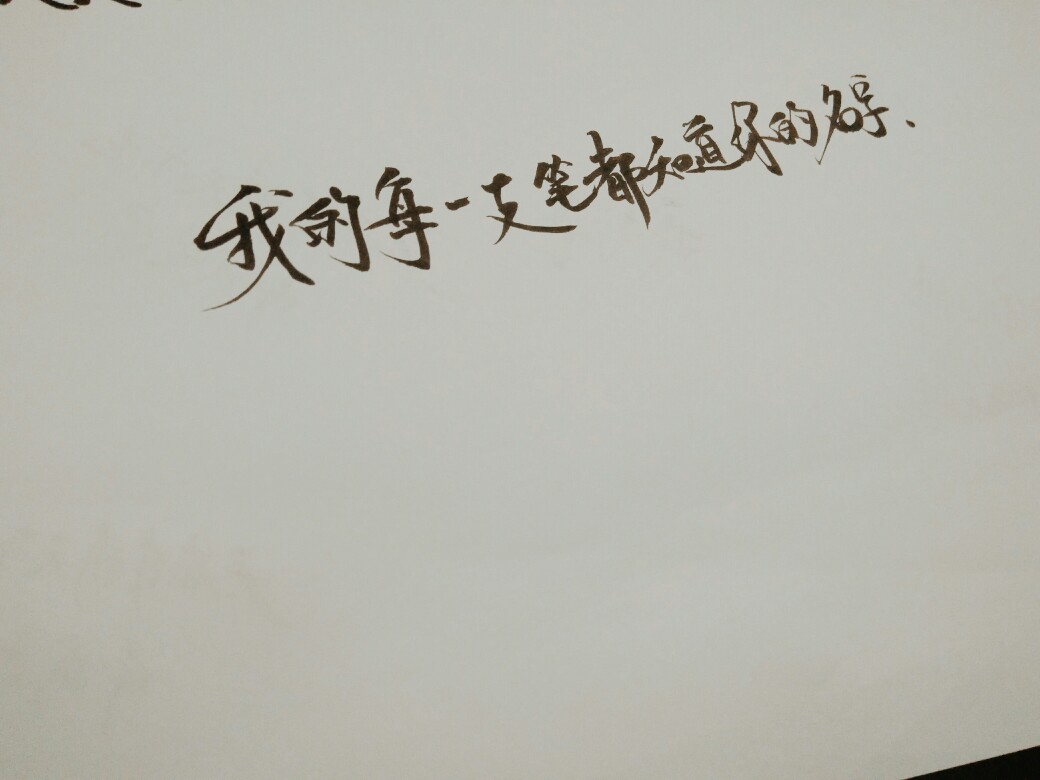 我的每一支笔都知道你的名字、